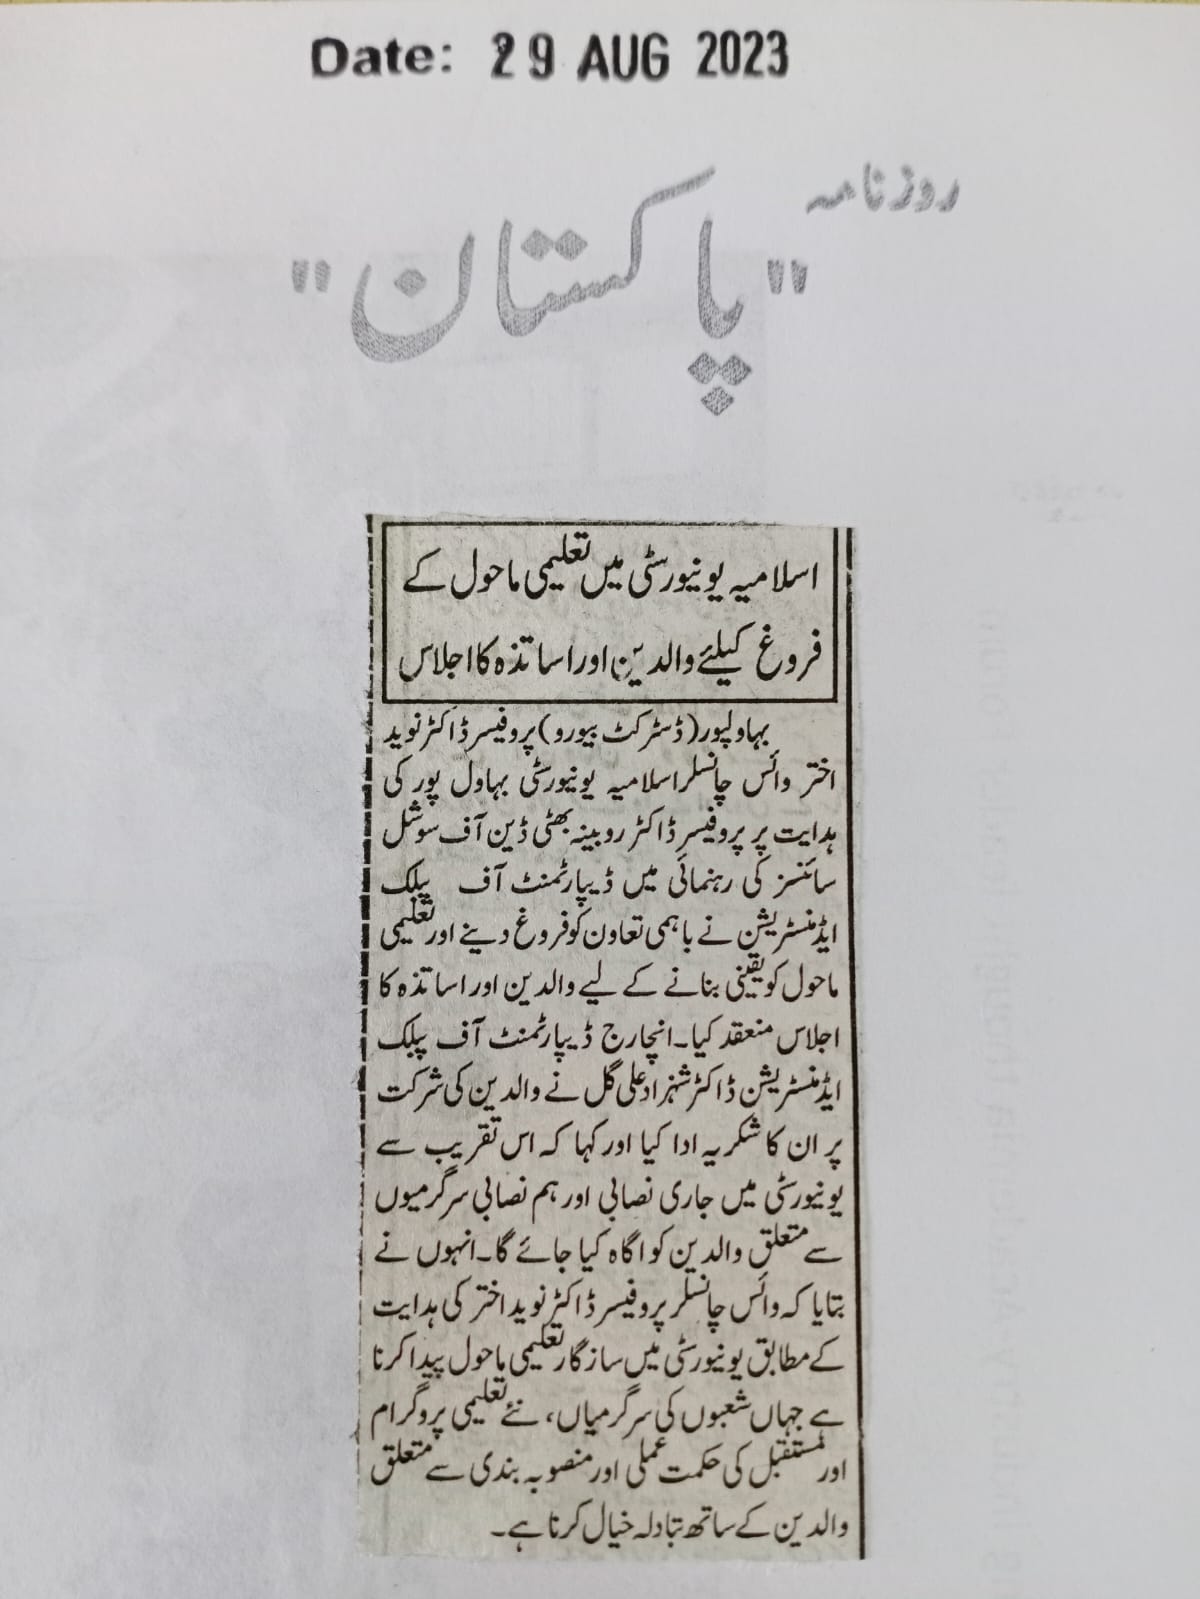 Date: 29 AUG 2023
روزنامہ
"پاکستان"
اسلامیہ یونیورسٹی میں تعلیمی ماحول کے
فروغ کیلئے والدین اور اساتذہ کا اجلاس
بہاولپور (ڈسٹرکٹ بیورو) پروفیسر ڈاکٹر نوید
اختر وائس چانسلر اسلامیہ یونیورسٹی بہاول پور کی
ہدایت پر پروفیسر ڈاکٹر روبینہ بھٹی ڈین آف سوشل
سائنسز کی رہنمائی میں ڈیپارٹمنٹ آف پبلک
ایڈمنسٹریشن نے باہمی تعاون کو فروغ دینے اور تعلیمی
ماحول کو یقینی بنانے کے لیے والدین اور اساتذہ کا
اجلاس منعقد کیا۔ انچارج ڈیپارٹمنٹ آف پبلک
ایڈمنسٹریشن ڈاکٹر شہزاد علی گل نے والدین کی شرکت
پر ان کا شکریہ ادا کیا اور کہا کہ اس تقریب سے
یونیورسٹی میں جاری نصابی اور ہم نصابی سرگرمیوں
سے متعلق والدین کو اگاہ کیا جائے گا۔ انہوں نے
بتایا کہ وائس چانسلر پروفیسر ڈاکٹر نوید اختر کی ہدایت
کے مطابق یونیورسٹی میں سازگار تعلیمی ماحول پیدا کرنا
ہے جہاں شعبوں کی سرگرمیاں، نئے تعلیمی پروگرام
اور مستقبل کی حکمت عملی اور منصوبہ بندی سے متعلق
والدین کے ساتھ تبادلہ خیال کرنا ہے۔